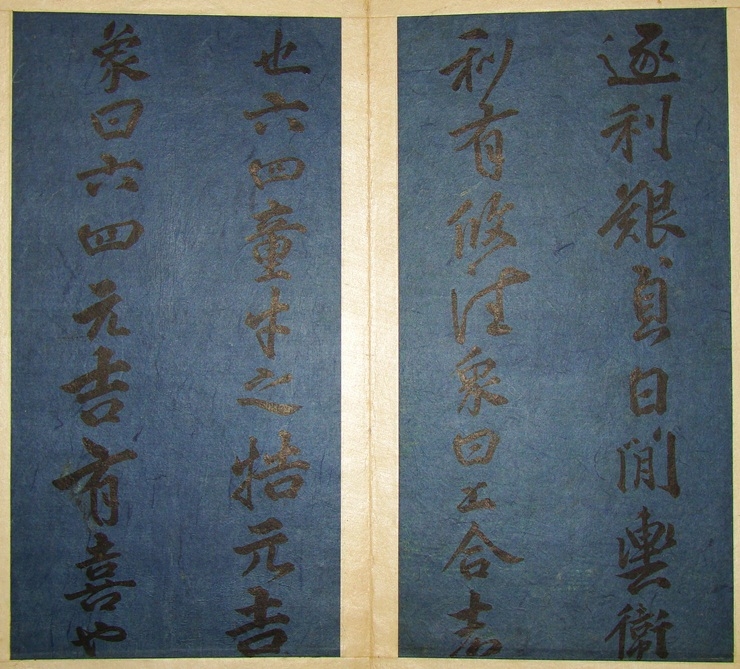 逐利艱貞日閑輿衛
利有攸往象曰上合志
也六四童牛之牿元吉
象曰六四元吉有喜也